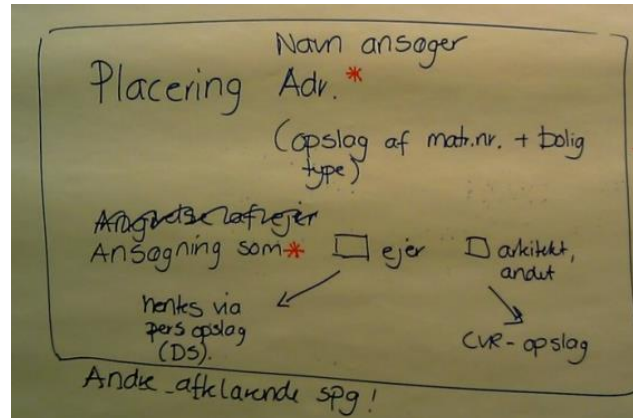 Navn ansøger
Placering Adr. *
(opslag af matr.nr. + bolig
type)
Angivelse af ejer
Ansøgning som * ☐ ejer ☐ arkitekt,
andet
hentes via
pers opslag
(DS).
CVR-opslag
Andre afklarende spg!